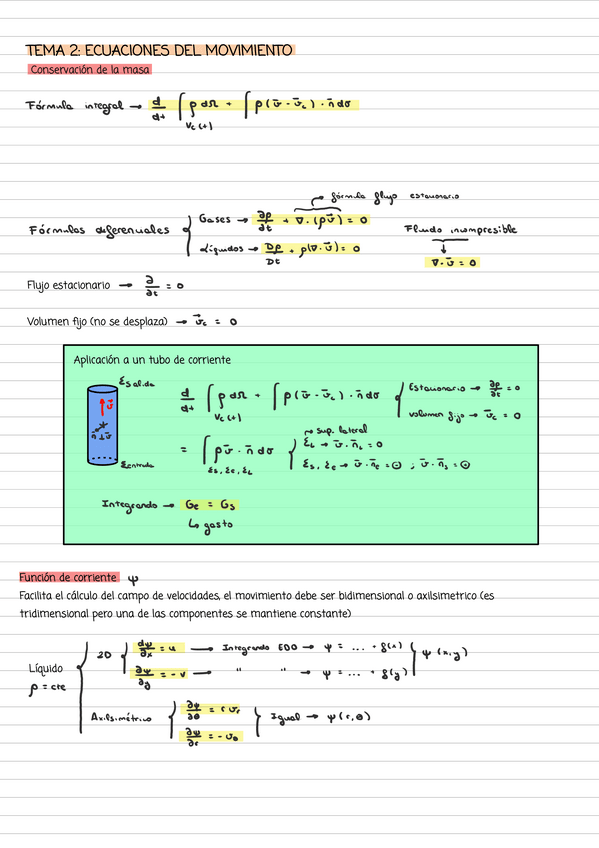 TEMA 2: ECUACIONES DEL MOVIMIENTO
Conservación de la masa
Fórmula integral → d/dt ∫ ρ dΩ + ∫ ρ(v̄ - v̄c) · n̄ dσ
Vc(t)
fórmula flujo estacionario
Fórmulas diferenciales
Gases → ∂ρ/∂t + ∇·(ρv̄) = 0
Líquidos → Dρ/Dt + ρ(∇·v̄) = 0
Fluido incompresible
↓
∇·v̄ = 0
Flujo estacionario → ∂/∂t = 0
Volumen fijo (no se desplaza) → v̄c = 0
Aplicación a un tubo de corriente
Σsalida
v̄
n̄⊥v̄
Σentrada
d/dt ∫ ρ dΩ + ∫ ρ(v̄ - v̄c) · n̄ dσ
Vc(t)
Estacionario → ∂ρ/∂t = 0
Volumen fijo → v̄c = 0
= ∫ ρv̄ · n̄ dσ
Σs, Σe, ΣL
→ sup. lateral
ΣL → v̄·n̄L = 0
Σs, Σe → v̄·n̄e = ⊖ ; v̄·n̄s = ⊕
Integrando → Ge = Gs
↳ gasto
Función de corriente ψ
Facilita el cálculo del campo de velocidades, el movimiento debe ser bidimensional o axilsimetrico (es
tridimensional pero una de las componentes se mantiene constante)
Líquido
ρ = cte
2D
dψ/∂x = u → Integrando EDO → ψ = ... + g(x)
∂ψ/∂y = -v → " " → ψ = ... + g(y)
ψ(x,y)
Axilsimétrico
∂ψ/∂θ = r vr
∂ψ/∂r = - vθ
Igual → ψ(r,θ)